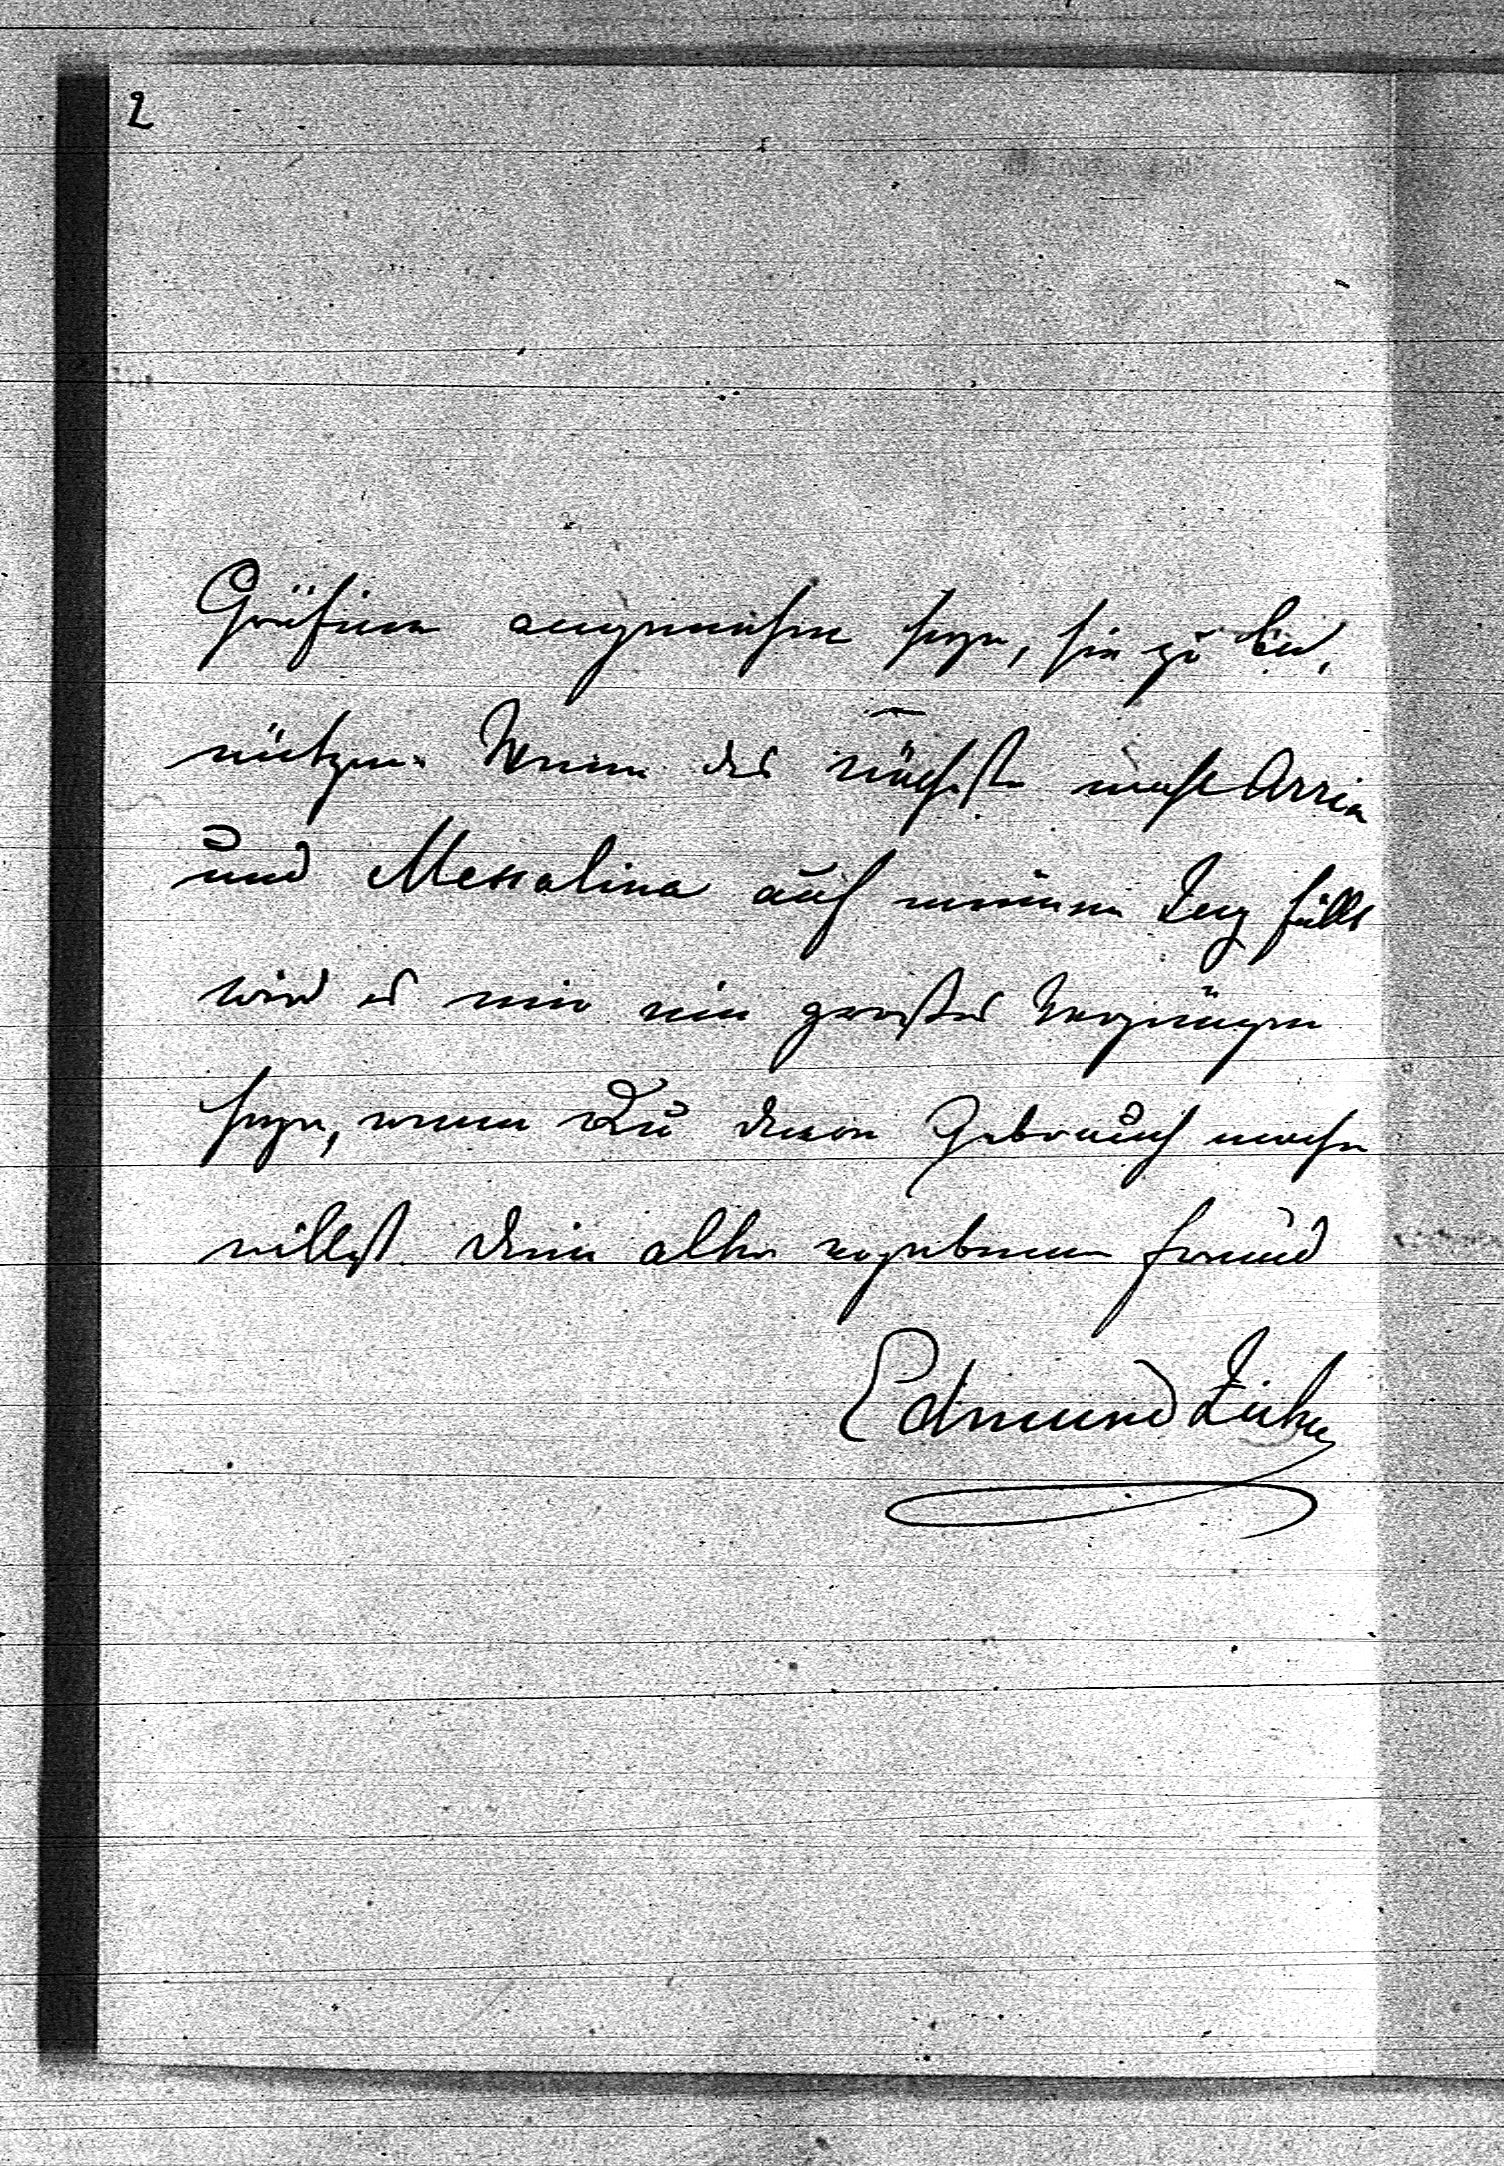 2
Gräfinn angenehm seyn, sie zu be,
nützen. Wenn das nächste mahl Arria
und Messalina auf meinen Tag fällt
wird es mir ein großes Vergnügen
seyn, wenn Du davon Gebrauch machen
willst. Dein alter ergebener Freund
Edmund Zichy